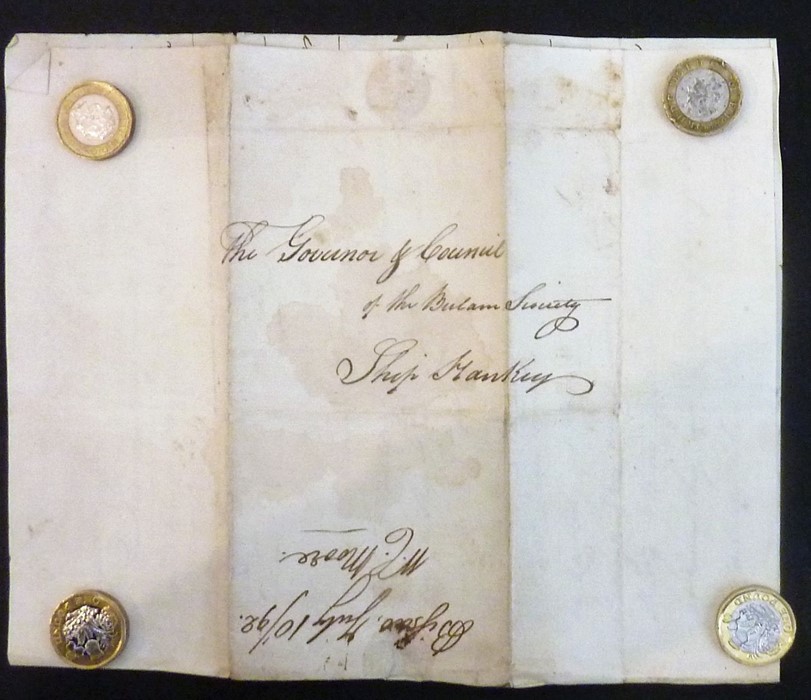 The Governor & Council
of the Bulam Society
Ship Hankey
Bissao July 10/92.
W. C. Moore.